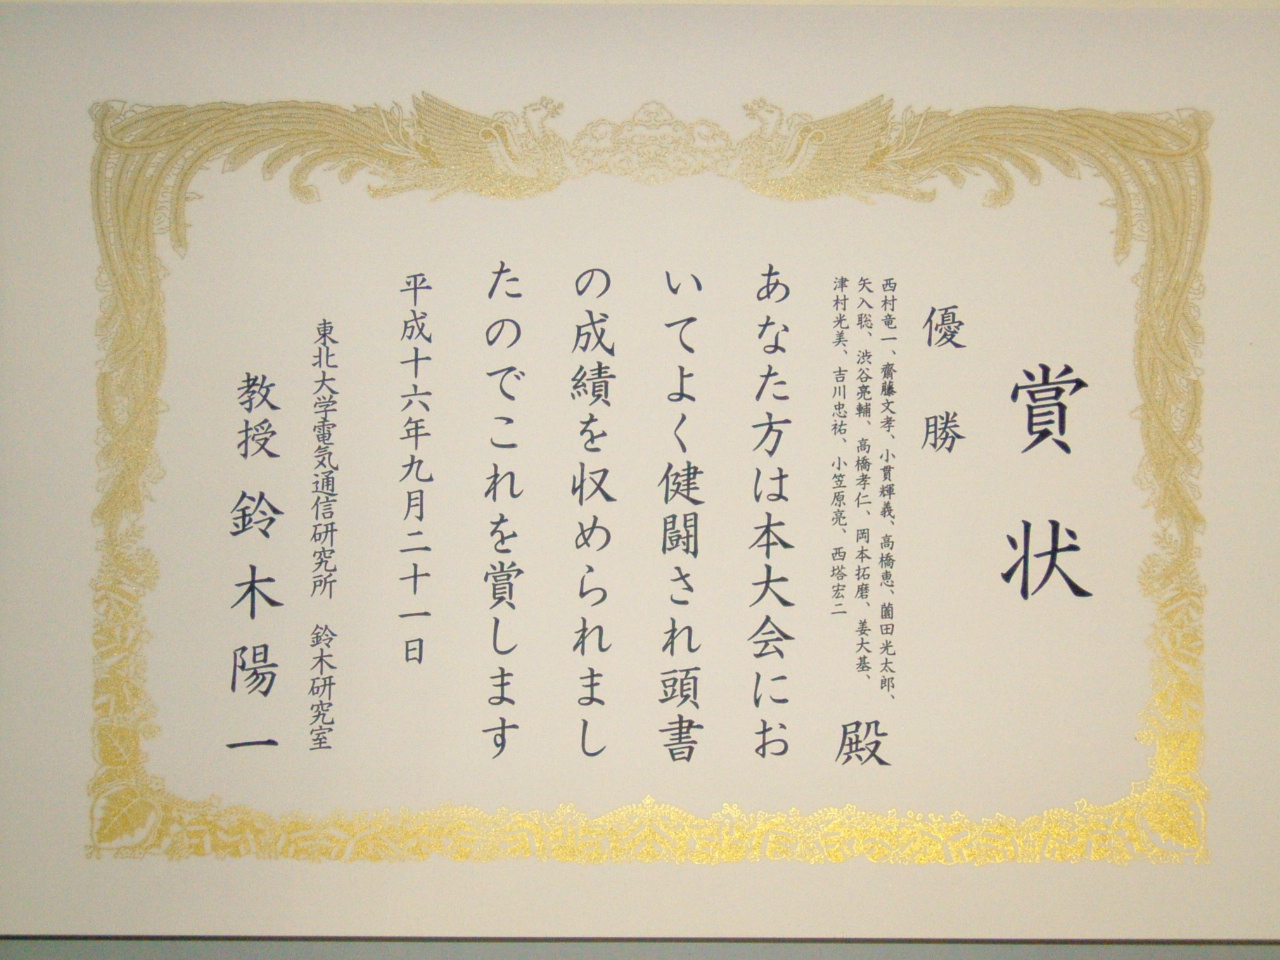 賞状
優勝
西村竜一、齋藤文孝、小貫輝義、高橋恵、薗田光太郎、
矢入聡、渋谷亮輔、高橋孝仁、岡本拓磨、姜大基、
津村光美、吉川忠祐、小笠原亮、西塔宏二
殿
あなた方は本大会にお
いてよく健闘され頭書
の成績を収められまし
たのでこれを賞します
平成十六年九月二十一日
東北大学電気通信研究所 鈴木研究室
教授 鈴木陽一